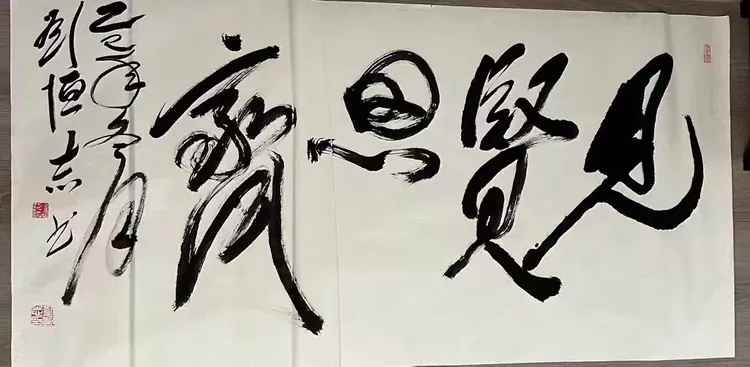 見賢思齊
乙巳年冬月
劉恒志书